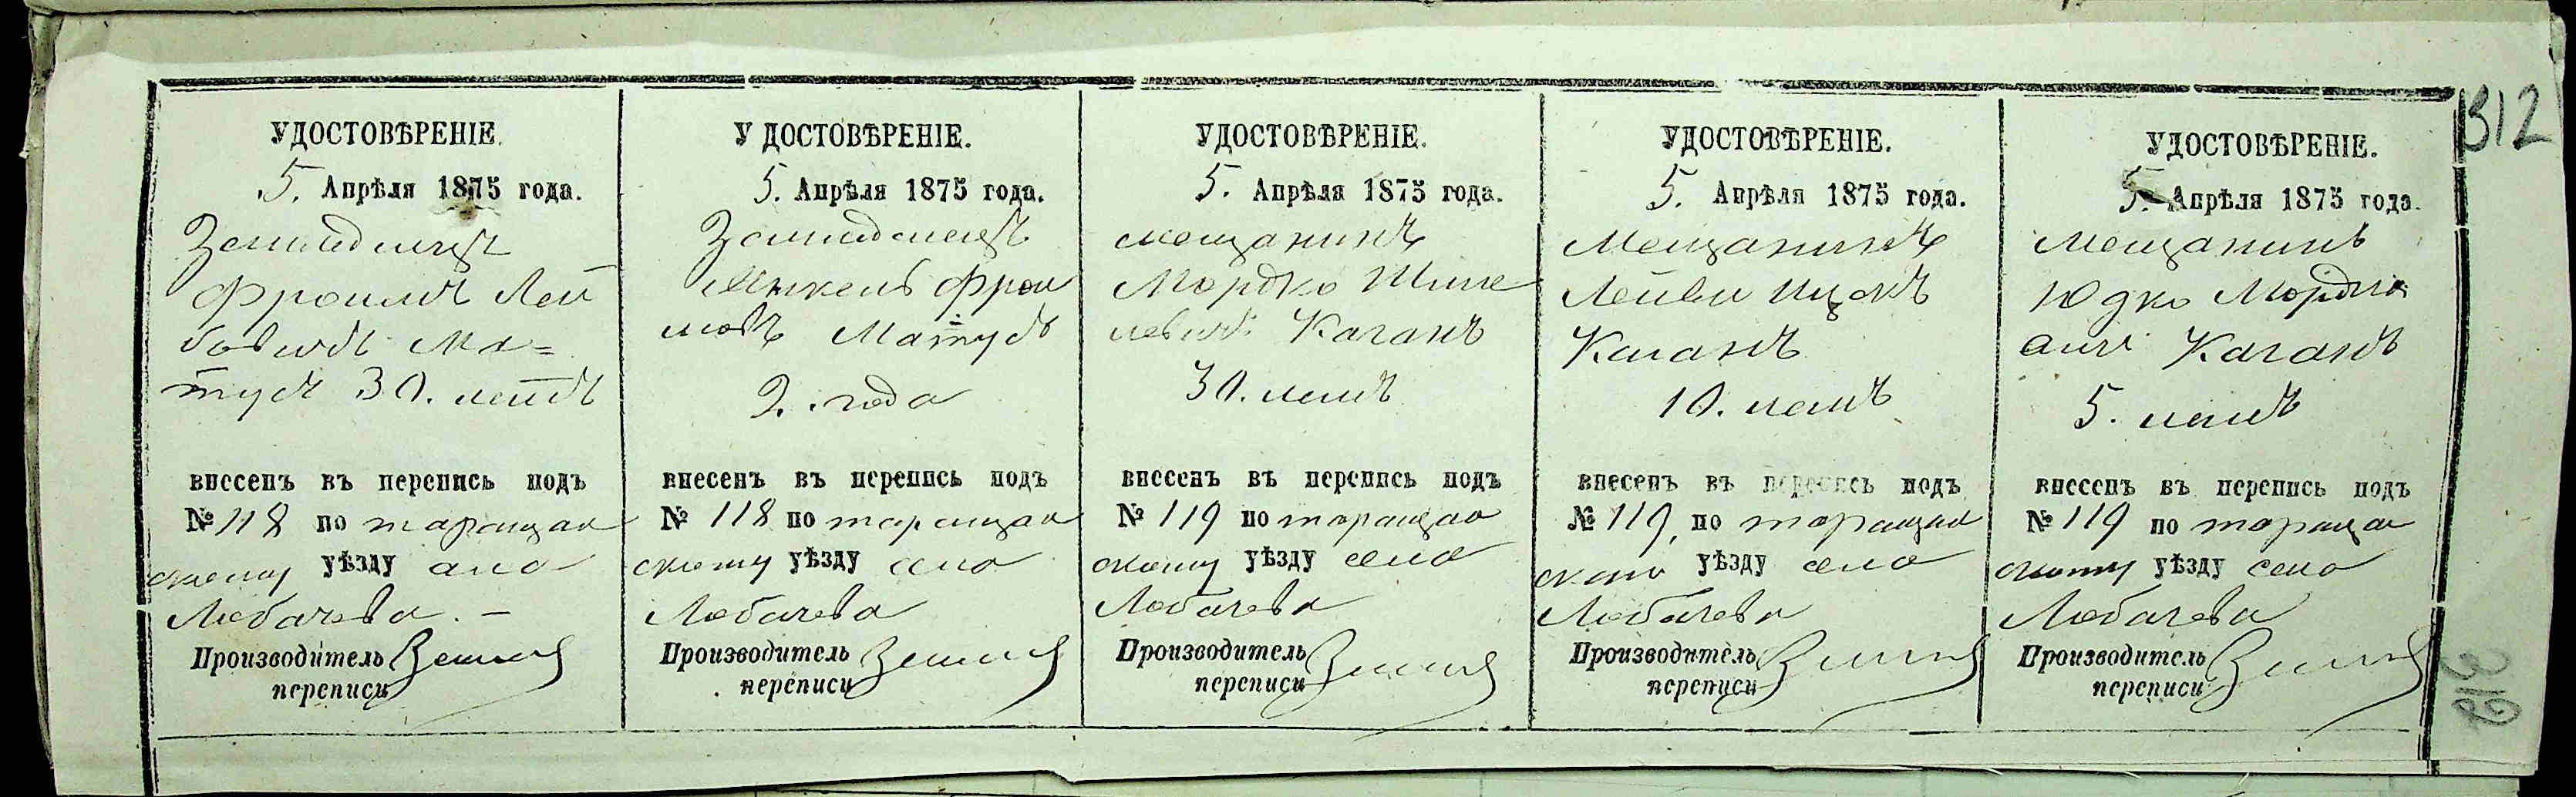 312
УДОСТОВѢРЕНІЕ.
5. Апрѣля 1875 года.
Фроимъ Лей
бовичъ Ма=
тусъ 30. летъ
внесенъ въ перепись подъ
№ 118 по таращан
скому уѣзду села
Лобачева. —
Производитель
переписи
УДОСТОВѢРЕНІЕ.
5. Апрѣля 1875 года.
Янкель Фрои
мовъ Матусъ
2. года
внесенъ въ перепись подъ
№ 118 по таращан
скому уѣзду села
Лобачева
Производитель
переписи
УДОСТОВѢРЕНІЕ.
5. Апрѣля 1875 года.
мещанинъ
Мордко
Каганъ
30. летъ
внесенъ въ перепись подъ
№ 119 по таращан
скому уѣзду села
Лобачева
Производитель
переписи
УДОСТОВѢРЕНІЕ.
5. Апрѣля 1875 года.
Мещанинъ
Лейви Ицекъ
Каганъ
10. летъ
внесенъ въ перепись подъ
№ 119, по таращан
уѣзду села
Лобачева
Производитель
переписи
УДОСТОВѢРЕНІЕ.
5. Апрѣля 1875 года.
мещанинъ
Юдко
Каганъ
5. летъ
внесенъ въ перепись подъ
№ 119 по таращан
скому уѣзду села
Лобачева
Производитель
переписи